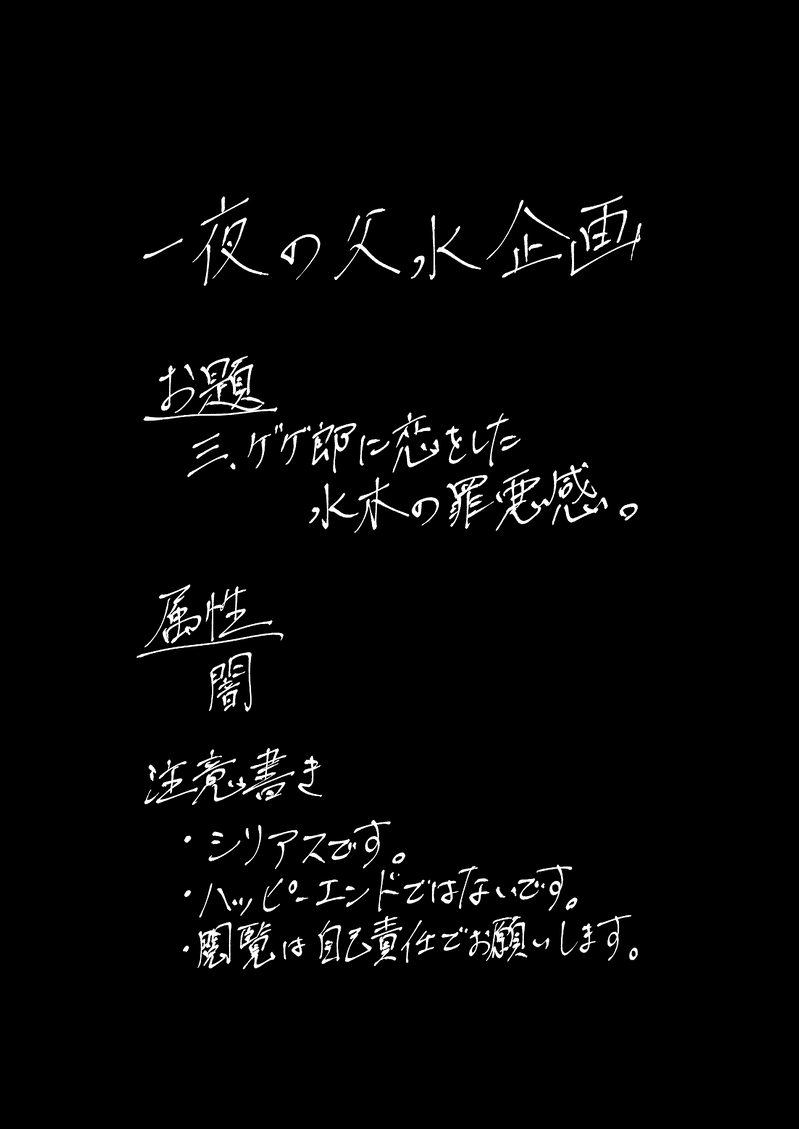 一夜の父水企画
お題
三、ゲゲ郎に恋をした
水木の罪悪感。
属性
闇
注意書き
・シリアスです。
・ハッピーエンドではないです。
・閲覧は自己責任でお願いします。